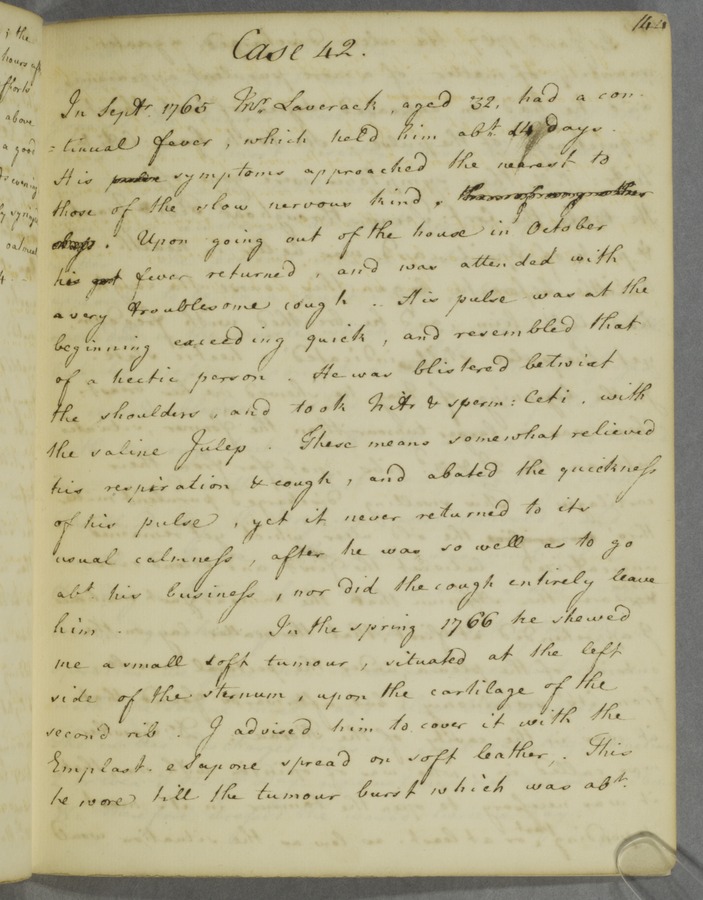 ; the
hours aft
efforts
above
a good
144
Case 42.
In Septr. 1765 Mr. Laverack, aged 32, had a con-
=tinual fever, which held him abt. 14 days.
His pulse symptoms approached the nearest to
those of the slow nervous kind,
. Upon going out of the house in October
his got fever returned, and was attended with
a very troublesome cough. His pulse was at the
beginning exceeding quick, and resembled that
of a hectic person. He was blistered betwixt
the shoulders, and took Nitr & sperm: Ceti, with
the saline Julep. These means somewhat relieved
his respiration & cough, and abated the quickness
of his pulse, yet it never returned to its
usual calmness, after he was so well as to go
abt. his business, nor did the cough entirely leave
him. In the spring 1766 he shewed
me a small soft tumour, situated at the left
side of the sternum, upon the cartilage of the
second rib. I advised him to cover it with the
Emplast. e Sapone spread on soft leather,. This
he wore till the tumour burst which was abt.